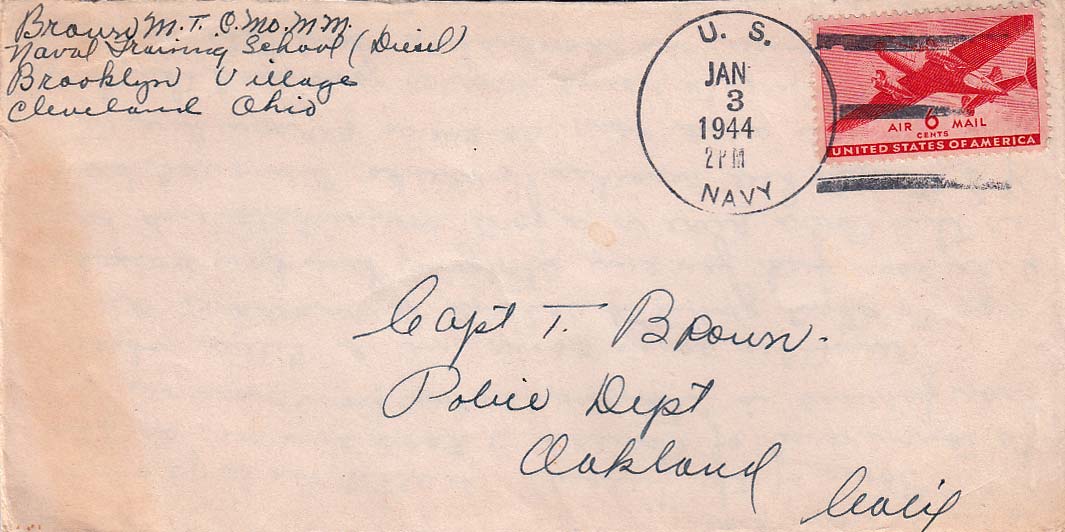 Brown M. T. C. Mo. M. M.
Naval Training School (Diesel)
Brooklyn Village
Cleveland Ohio
U. S.
JAN
3
1944
2 PM
NAVY
AIR 6 MAIL
CENTS
UNITED STATES OF AMERICA
Capt T. Brown.
Police Dept
Oakland
Calif